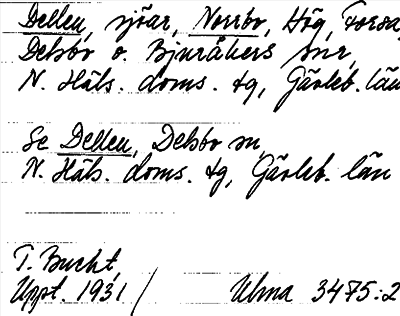 Dellen, sjöar, Norrbo, Hög, Forsa,
Delsbo o. Bjuråkers snr,
N. Häls. doms. tg, Gävleb. län
Se Dellen, Delsbo sn,
N. Häls. doms. tg, Gävleb. län
T. Bucht,
Uppt. 1931/ Ulma 3475:2